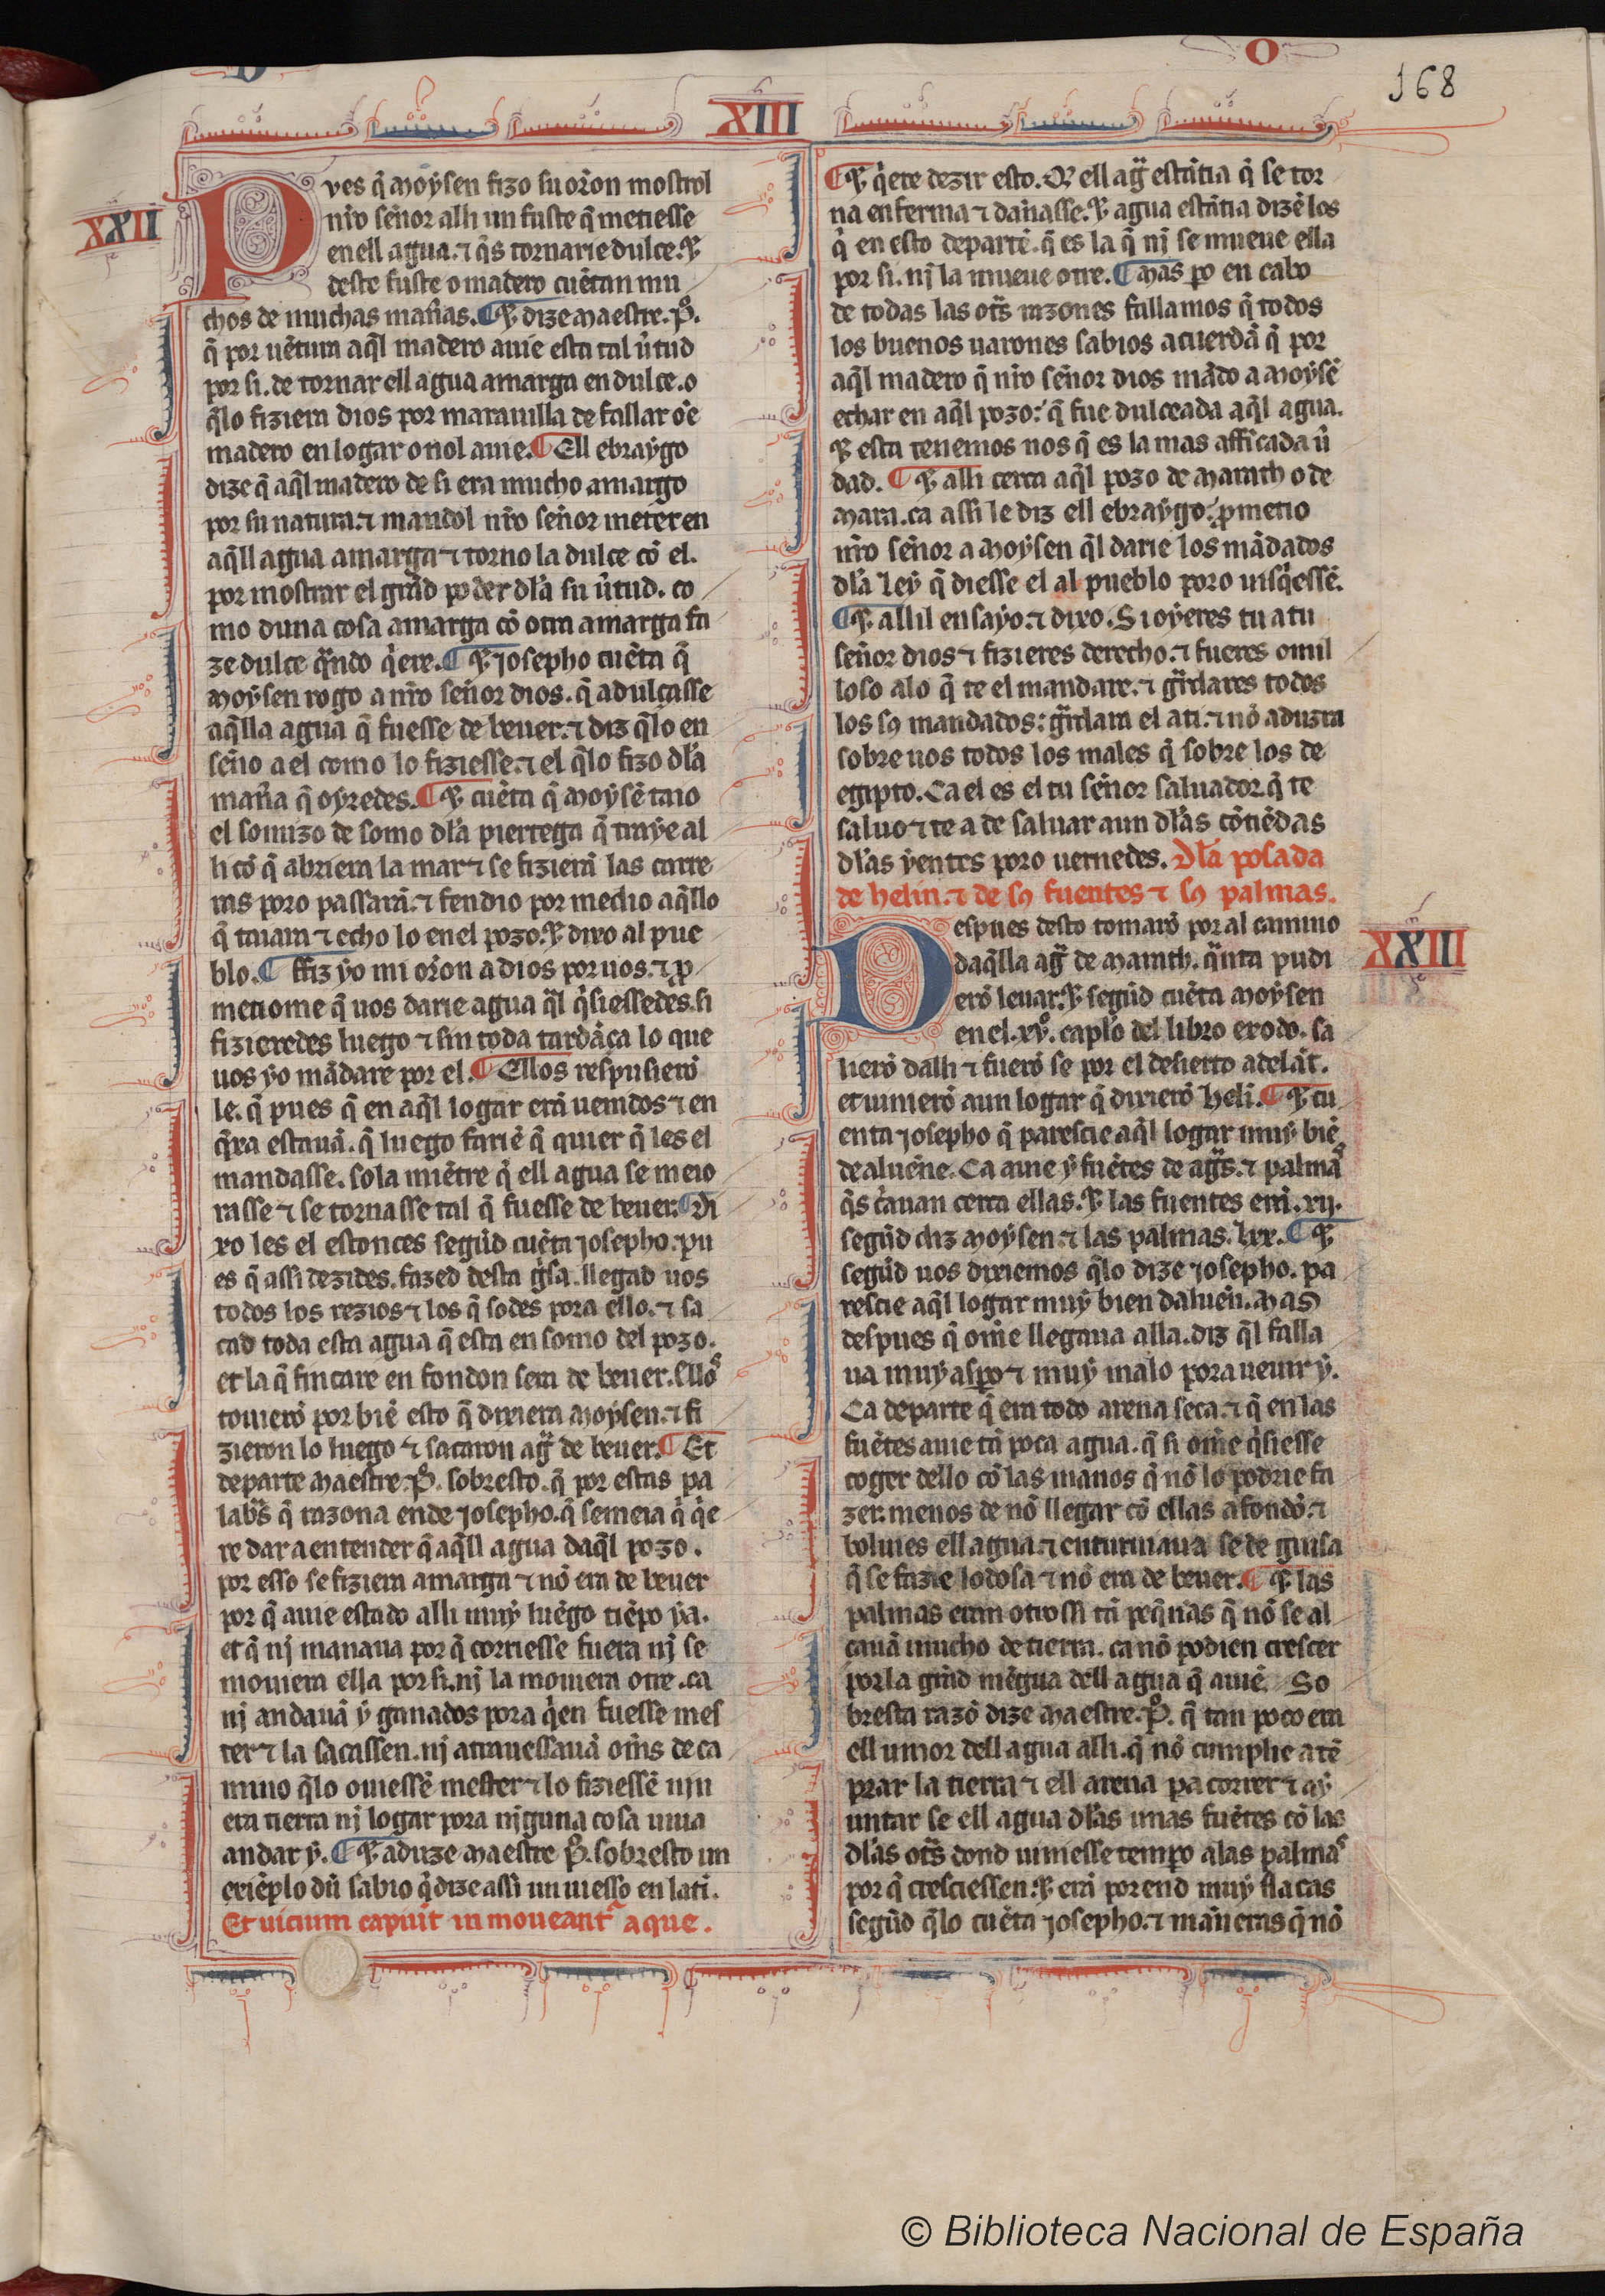 O
168
XIII
XXII
Pves q̃ moẏsen fizo su or̃on mostrol
nr̃o señor alli un fuste q̃ metiesse
en ell agua. ⁊ q̃s tornarie dulce. ⁊
deste fuste o madero cuẽtan mu
chos de muchas mañas. ¶ ⁊ dize maestre. P̊.
q̃ por uẽtura aq̃l madero auie esta tal u̾tud
por si. de tornar ell agua amarga en dulce. o
q̃lo fiziera dios por marauilla de fallar oẽ
madero en logar o nol auie. ¶ Ell ebraẏgo
dize q̃ aq̃l madero de si era mucho amargo
por su natura. ⁊ mandol nr̃o señor meter en
aq̃ll agua amarga ⁊ torno la dulce cõ el.
por mostrar el grãd poder dl̃a su u̾tud. co
mo duna cosa amarga cõ otra amarga fa
ze dulce q̃ndo q̃ere. ¶ ⁊ josepho cuẽta q̃
moẏsen rogo a nr̃o señor dios. q̃ adulçasse
aq̃lla agua q̃ fuesse de beuer. ⁊ diz q̃lo en
seño a el como lo fiziesse. ⁊ el q̃lo fizo dl̃a
mañа q̃ oyredes. ¶ ⁊ cuẽta q̃ moẏsẽ taio
el somizo de somo dl̃a piertega q̃ traẏe al
li cõ q̃ abriera la mar ⁊ se fizierã las carre
ras poro passarã. ⁊ fendio por medio aq̃llo
q̃ taiara ⁊ echo lo en el pozo. ⁊ dixo al pue
blo. ¶ ffiz ẏo mi or̃on a dios por uos. ⁊ p
metiome q̃ uos darie agua q̃l q̃siessedes. si
fizieredes luego ⁊ sin toda tardãça lo que
uos ẏo mãdare por el. ¶ Ellos respusierõ
le. q̃ pues q̃ en aq̃l logar erã uenidos ⁊ en
q̃xa estauã. q̃ luego fariẽ q̃ quier q̃ les el
mandasse. sola miẽtre q̃ ell agua se meio
rasse ⁊ se tornasse tal q̃ fuesse de beuer. ¶ Di
xo les el estonces segũd cuẽta josepho. pu
es q̃ assi dezides. fazed desta g̃sa. llegad uos
todos los rezios ⁊ los q̃ sodes pora ello. ⁊ sa
cad toda esta agua q̃ esta en somo del pozo.
et la q̃ fincare en fondon sera de beuer. Ellos
touierõ por biẽ esto q̃ dixiera moẏsen. ⁊ fi
zieron lo luego ⁊ sacaron ag̃ de beuer. ¶ Et
departe maestre. P̊. sobresto. q̃ por estas pa
labr̃s q̃ razona ende josepho. q̃ semeia q̃ q̃e
re dar a entender q̃ aq̃ll agua daq̃l pozo.
por esso se fiziera amarga ⁊ nõ era de beuer
por q̃ auie estado alli muẏ luẽgo tiẽpo ẏa.
et q̃ nj manaua por q̃ corriesse fuera nj se
mouiera ella por si. nj la mouiera otre. ca
nj andauã ẏ ganados pora q̃en fuesse mes
ter ⁊ la sacassen. nj atrauessauã om̃s de ca
mino q̃lo ouiessẽ mester ⁊ lo fiziessẽ nin
era tierra nj logar pora njguna cosa uiua
andar ẏ. ¶ ⁊ aduze maestre P̊. sobresto un
exiẽplo dũ sabio q̃ dize assi un uiesso en latĩ.
Et uicium capiuit in moueant᷑ aque.
¶ ⁊ q̃ere dezir esto. Q̃ ell ag̃ estãtia q̃ se tor
na enferma ⁊ dañasse. ⁊ agua estãtia dizẽ los
q̃ en esto departẽ. q̃ es la q̃ nj se mueue ella
por si. nj la mueue otre. ¶ Mas po en cabo
de todas las otr̃s razones fallamos q̃ todos
los buenos uarones sabios acuerdã q̃ por
aq̃l madero q̃ nr̃o señor dios mãdo a moẏsẽ
echar en aq̃l pozo: q̃ fue dulceada aq̃l agua.
⁊ esta tenemos nos q̃ es la mas afficada u̾
dad. ¶ ⁊ alli cerca aq̃l pozo de marath o de
mara. ca assi le diz ell ebraẏgo: pmetio
nr̃o señor a moẏsen q̃l darie los mãdados
dl̃a leẏ q̃ diesse el al pueblo poro uisq̃essẽ.
¶ ⁊ allil ensayo. ⁊ dixo. Si oẏeres tu a tu
señor dios ⁊ fizieres derecho. ⁊ fueres omil
loso a lo q̃ te el mandare. ⁊ g̃rdares todos
los sꝯ mandados: g̃rdara el a ti. ⁊ nõ aduzra
sobre uos todos los males q̃ sobre los de
egipto. Ca el es el tu señor saluador. q̃ te
saluo ⁊ te a de saluar aun dl̃as cõtiẽdas
dl̃as ẏentes poro uernedes. Dl̃a posada
de helin. ⁊ de sꝯ fuentes ⁊ sꝯ palmas.
XXIII
Despues desto tomarõ por al camino
daq̃lla ag̃ de marath. q̃nta pudi
erõ leuar. ⁊ segũd cuẽta moẏsen
en el .xv̊. capl̃o del libro exodo. sa
lierõ dalli ⁊ fuerõ se por el desierto adelãt.
et uinierõ a un logar q̃ dixierõ helĩ. ¶ ⁊ cu
enta josepho q̃ parescie aq̃l logar muẏ biẽ
de alueñe. Ca auie ẏ fuẽtes de ag̃s. ⁊ palmas
q̃s c̃auan cerca ellas. ⁊ las fuentes erã .xij.
segũd diz moẏsen ⁊ las palmas. lxx. ¶ ⁊
segũd uos dixiemos q̃lo dize josepho. pa
rescie aq̃l logar muẏ bien dalueñ. Mas
despues q̃ om̃e llegaua alla. diz q̃l falla
ua muẏ aspo ⁊ muẏ malo pora ueuir ẏ.
Ca departe q̃ era todo arena seca. ⁊ q̃ en las
fuẽtes auie tã poca agua. q̃ si om̃e q̃siesse
coger dello cõ las manos q̃ nõ lo podrie fa
zer. menos de nõ llegar cõ ellas a fondõ. ⁊
boluies ell agua. ⁊ enturuiaua se de guisa
q̃ se fazie lodosa ⁊ nõ era de beuer. ¶ ⁊ las
palmas eran otrossi tã peq̃nas q̃ nõ se al
cauã mucho de tierra. ca nõ podien crescer
por la grãd mẽgua dell agua q̃ auiẽ. So
bresta razõ dize maestre. P̊. q̃ tan poco era
ell umor dell agua alli. q̃ nõ cumplie a tẽ
prar la tierra ⁊ ell arena pa correr ⁊ aẏ
untar se ell agua dl̃as unas fuẽtes cõ las
dl̃as otr̃s dond uiniesse tempo a las palmas
por q̃ cresciessen. ⁊ erã por end muẏ flacas
segũd q̃lo cuẽta josepho. ⁊ mañeras q̃ nõ
© Biblioteca Nacional de España